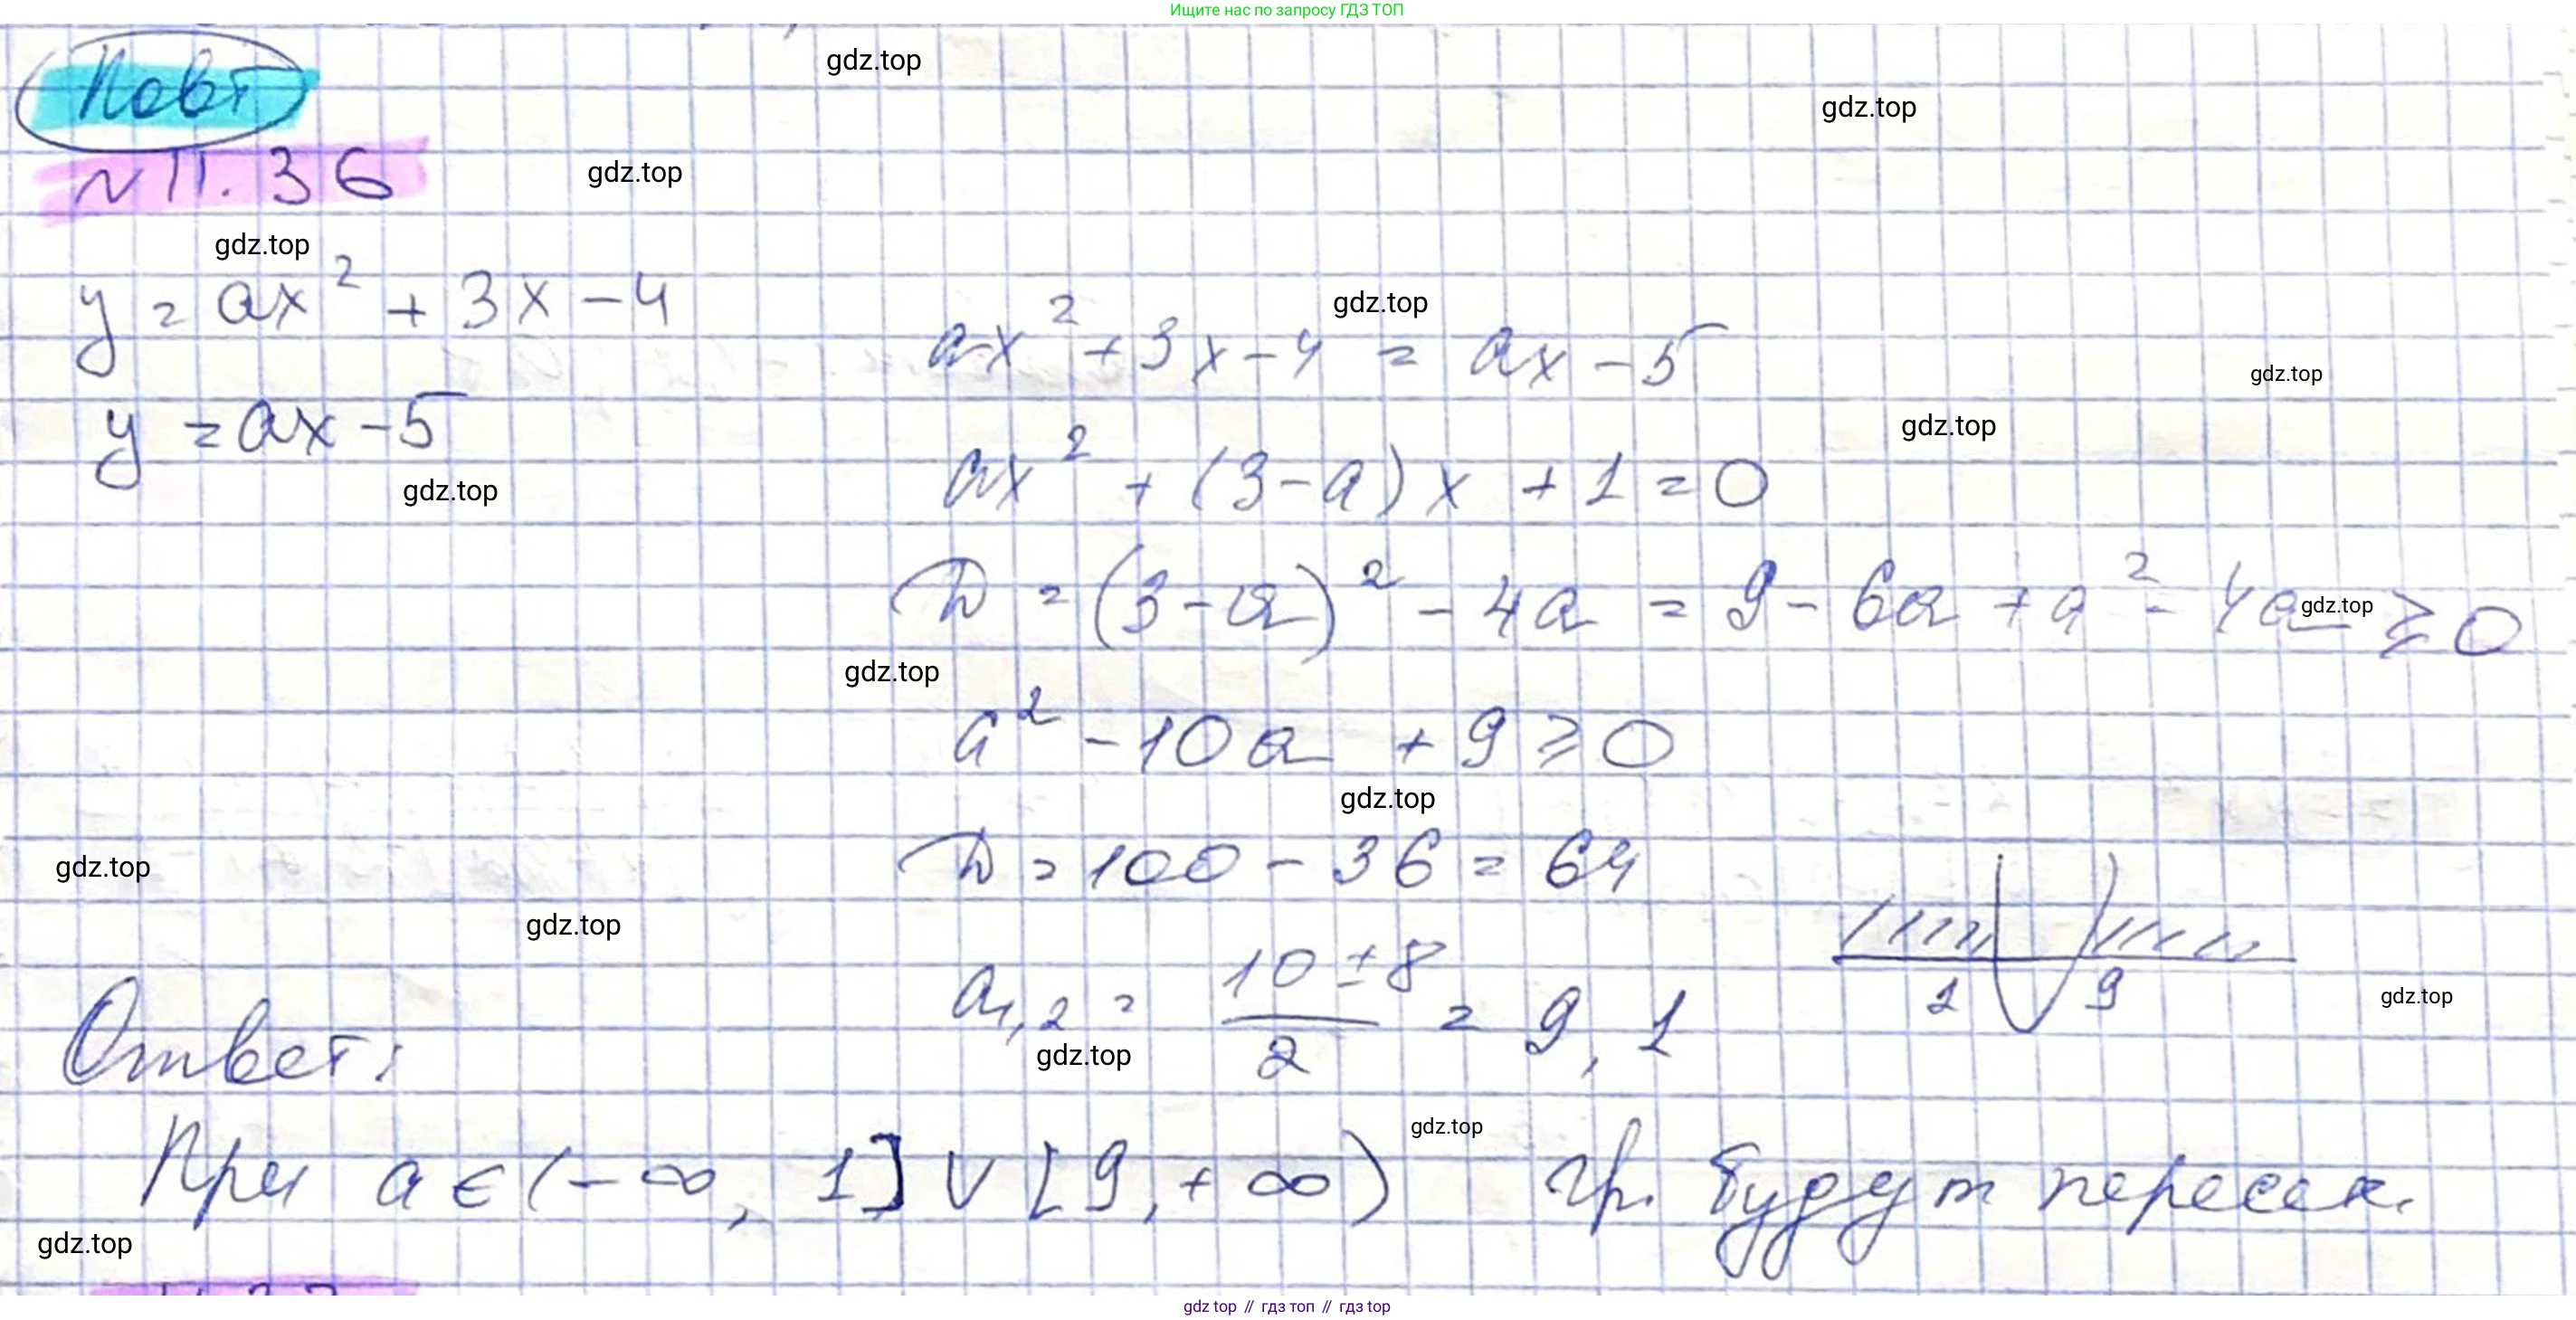 Ищите нас по запросу ГДЗ ТОП
Повт
gdz.top
gdz.top
N 11.36
gdz.top
gdz.top
y = ax² + 3x - 4
ax² + 3x - 4 = ax - 5
gdz.top
gdz.top
y = ax - 5
gdz.top
gdz.top
ax² + (3 - a) x + 1 = 0
D = (3 - a)² - 4a = 9 - 6a + a² - 4a ≥ 0
gdz.top
gdz.top
a² - 10a + 9 ≥ 0
gdz.top
D = 100 - 36 = 64
gdz.top
gdz.top
a1,2 = (10 ± 8)/2 = 9, 1
1 9
gdz.top
Ответ:
gdz.top
gdz.top
При a ∈ (-∞, 1] ∪ [9, +∞) гр. будут пересек.
gdz.top
gdz top // гдз топ // гдз top